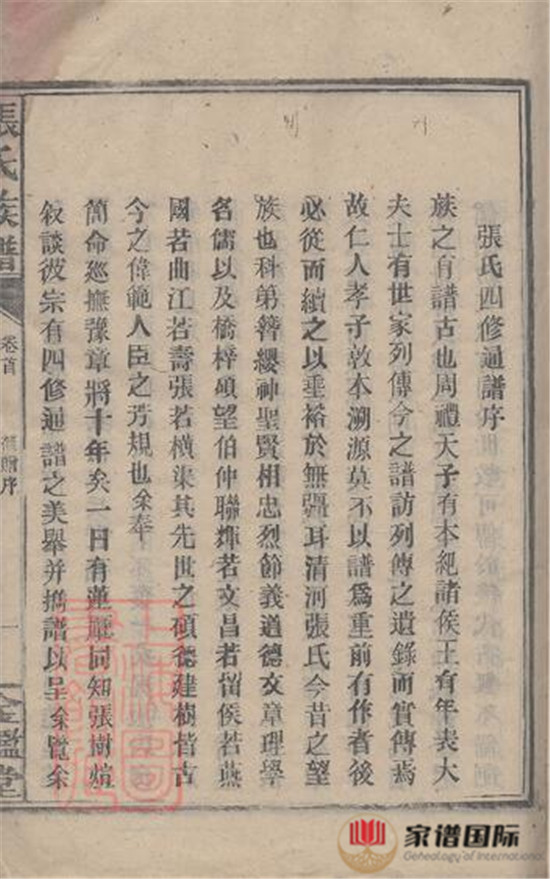 張氏四修通譜序
族之有譜古也周禮天子有本紀諸侯王有年表大
夫士有世家列傳今之譜訪列傳之遺錄而實傳焉
故仁人孝子敦本溯源莫不以譜爲重前有作者後
必從而續之以垂裕於無疆耳清河張氏今昔之望
族也科第簪纓神聖賢相忠烈節義道德文章理學
名儒以及橋梓碩望伯仲聯輝若文昌若留侯若燕
國若曲江若壽張若橫渠其先世之碩德建樹皆古
今之偉範人臣之芳規也余奉
簡命巡撫豫章將十年矣一日有蓮廳同知張樹
敘談彼宗有四修通譜之美舉并擕譜以呈余覽余
張氏族譜
卷首
贈序
一
金鑑堂
家谱国际
Genealogy of International